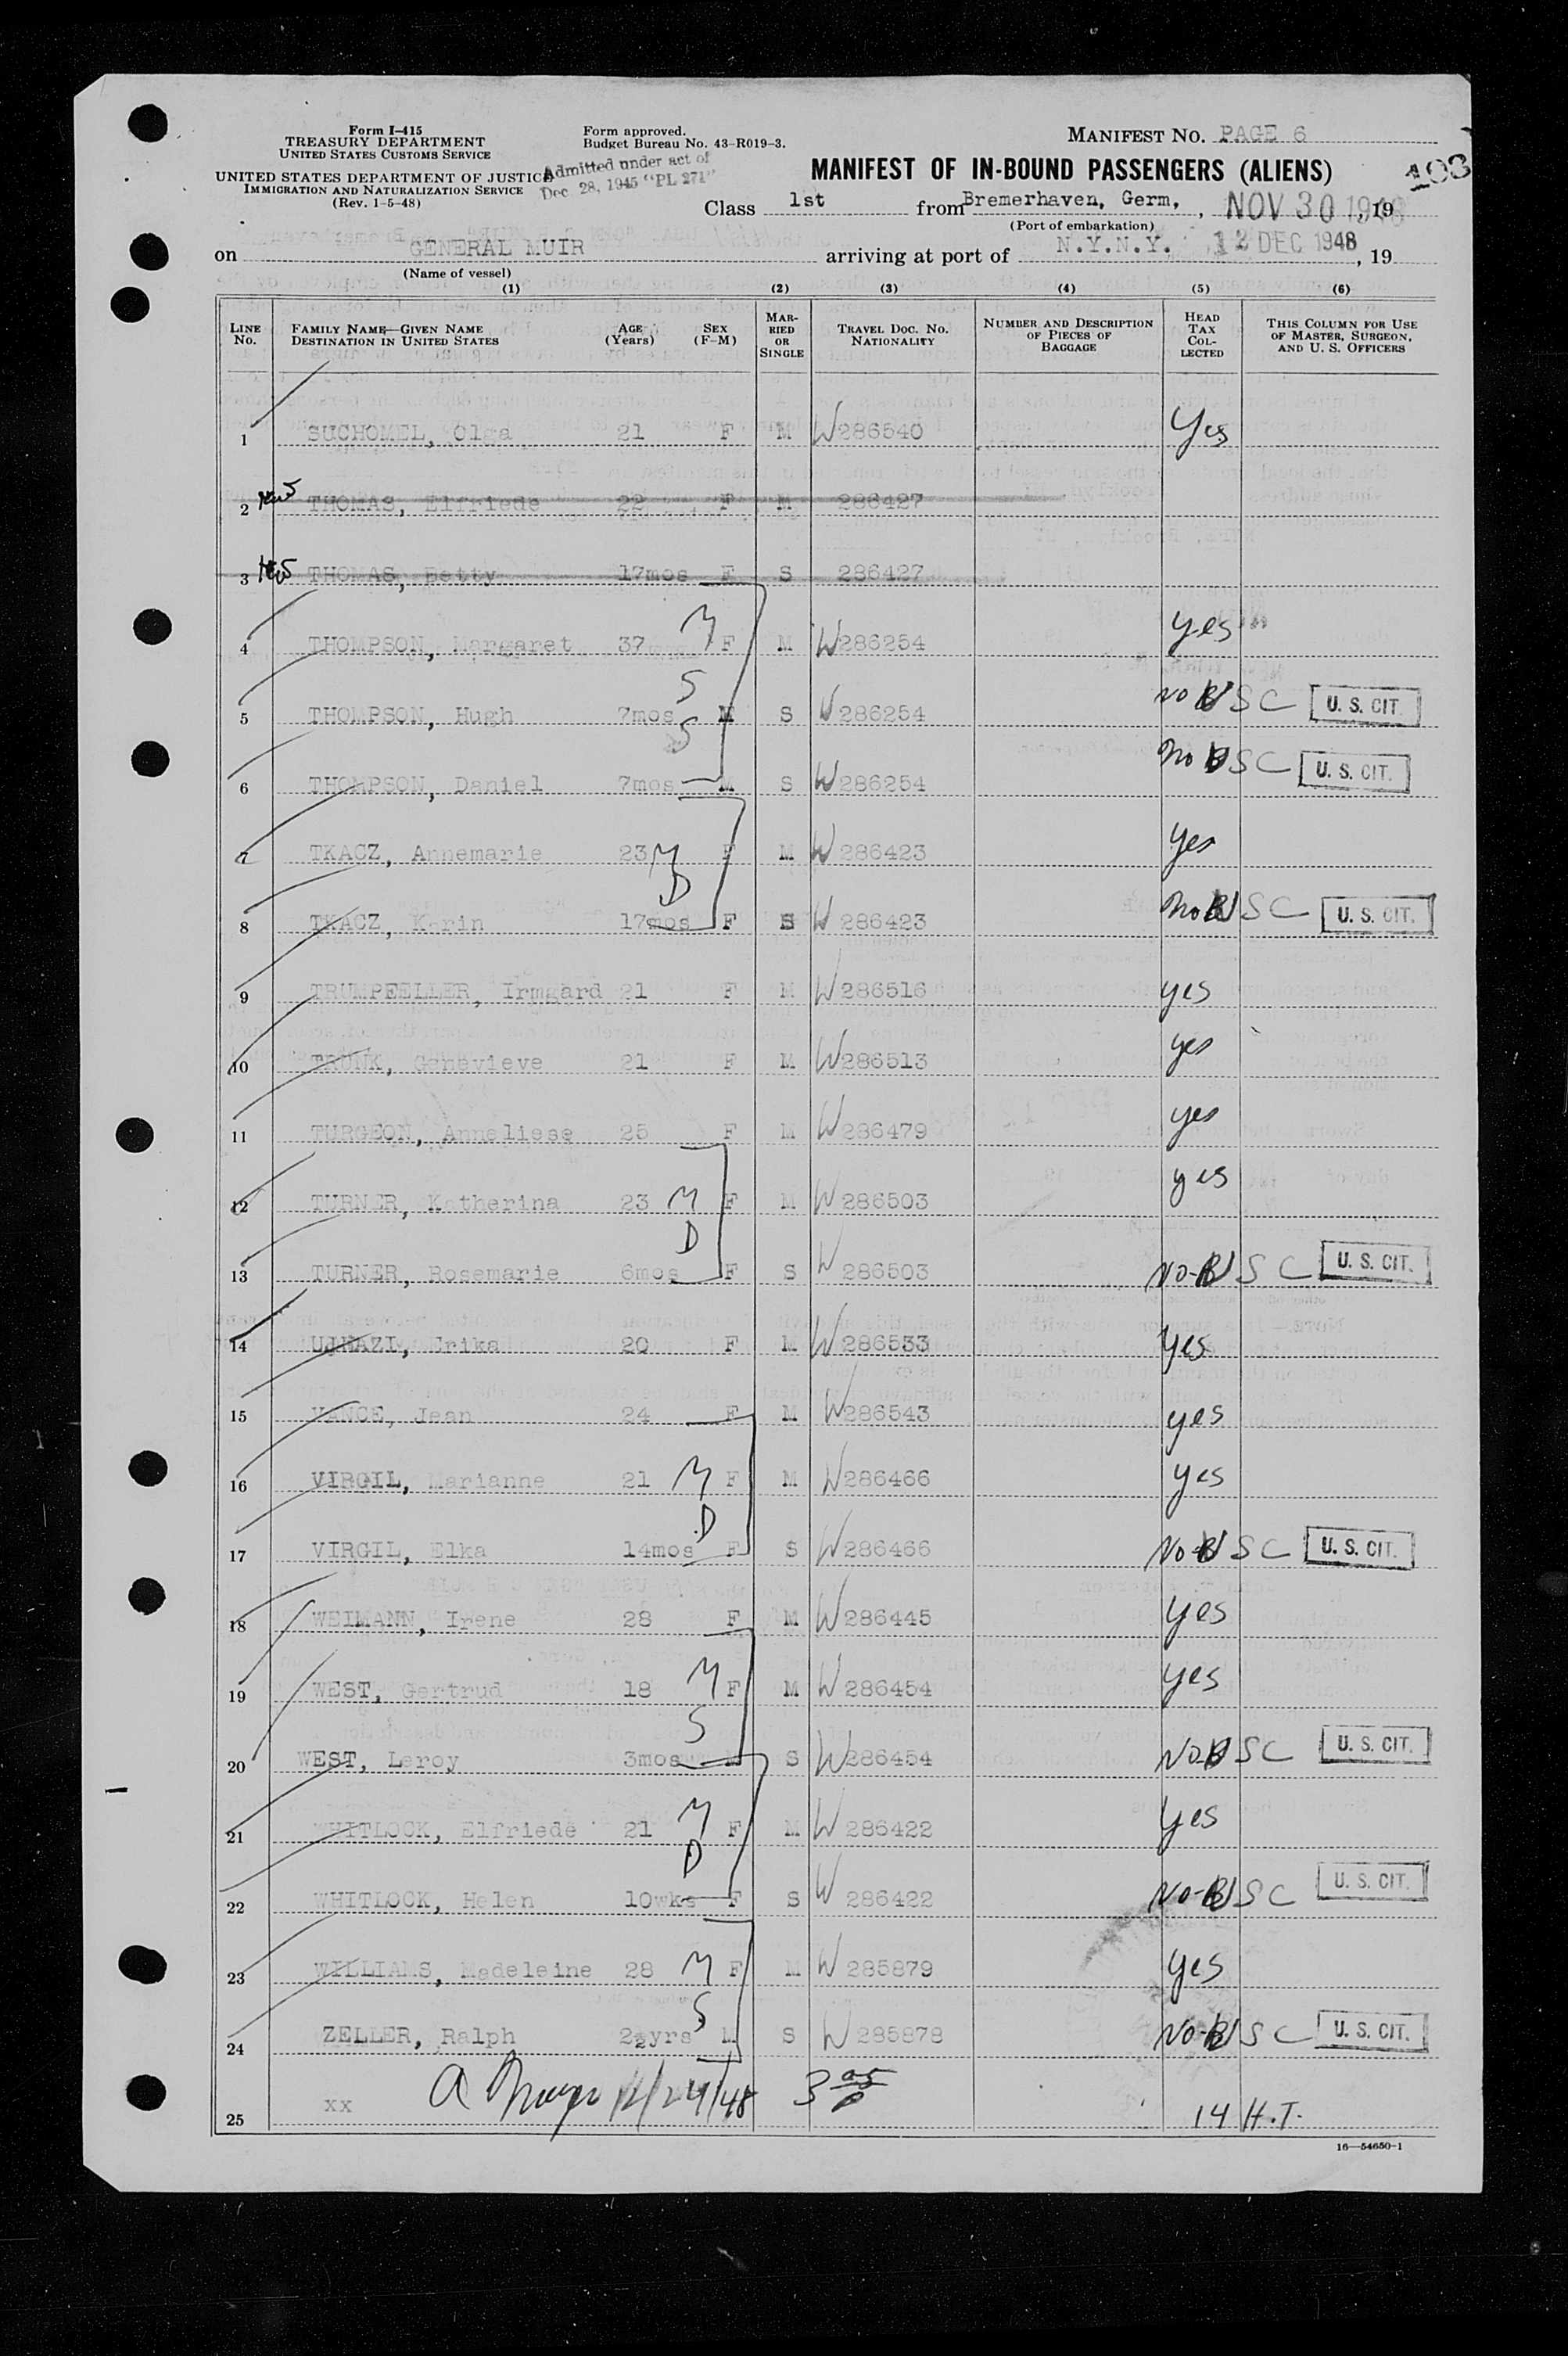 Form I-415
TREASURY DEPARTMENT
UNITED STATES CUSTOMS SERVICE
UNITED STATES DEPARTMENT OF JUSTICE
IMMIGRATION AND NATURALIZATION SERVICE
(Rev. 1-5-48)
Form approved.
Budget Bureau No. 43-R019-3.
Admitted under act of
Dec. 28, 1945 "PL 271"
MANIFEST NO. PAGE 6
MANIFEST OF IN-BOUND PASSENGERS (ALIENS)
Class 1st from Bremerhaven, Germ, , NOV 30 1948, 19
(Port of embarkation)
on GENERAL MUIR arriving at port of N.Y.N.Y. 12 DEC 1948, 19
(Name of vessel)
(1) (2) (3) (4) (5) (6)
LINE No. FAMILY NAME—GIVEN NAME DESTINATION IN UNITED STATES AGE (Years) SEX (F-M) MARRIED OR SINGLE TRAVEL DOC. NO. NATIONALITY NUMBER AND DESCRIPTION OF PIECES OF BAGGAGE HEAD TAX COLLECTED THIS COLUMN FOR USE OF MASTER, SURGEON, AND U. S. OFFICERS
1 SUCHOMEL, Olga 21 F M W 286540 Yes
2 THOMAS, Elfriede 22 F M 286427
3 THOMAS, Betty 17mos F S 286427
4 THOMPSON, Margaret 37 M F M W 286254 yes
5 THOMPSON, Hugh 7mos S M S W 286254 No USC U. S. CIT.
6 THOMPSON, Daniel 7mos S M S W 286254 No USC U. S. CIT.
7 TKACZ, Annemarie 23 M F M W 286423 yes
8 TKACZ, Karin 17mos D F S W 286423 No USC U. S. CIT.
9 TRUMPFELLER, Irmgard 21 F M W 286516 yes
10 TRUNK, Genevieve 21 F M W 286513 yes
11 TURGEON, Anneliese 25 F M W 286479 yes
12 TURNER, Katherina 23 M F M W 286503 yes
13 TURNER, Rosemarie 6mos D F S W 286503 No-USC U. S. CIT.
14 UJHAZI, Erika 20 F M W 286533 yes
15 VANCE, Jean 24 F M W 286543 yes
16 VIRGIL, Marianne 21 M F M W 286466 yes
17 VIRGIL, Elka 14mos D F S W 286466 No-USC U. S. CIT.
18 WEIMANN, Irene 28 F M W 286445 yes
19 WEST, Gertrud 18 M F M W 286454 yes
20 WEST, Leroy 3mos S M S W 286454 No USC U. S. CIT.
21 WHITLOCK, Elfriede 21 M F M W 286422 yes
22 WHITLOCK, Helen 10wks D F S W 286422 No-USC U. S. CIT.
23 WILLIAMS, Madeleine 28 M F M W 285879 yes
24 ZELLER, Ralph 2½yrs S M S W 285878 No-USC U. S. CIT.
25 xx 12/24/48 14 H.T.
16—54650-1